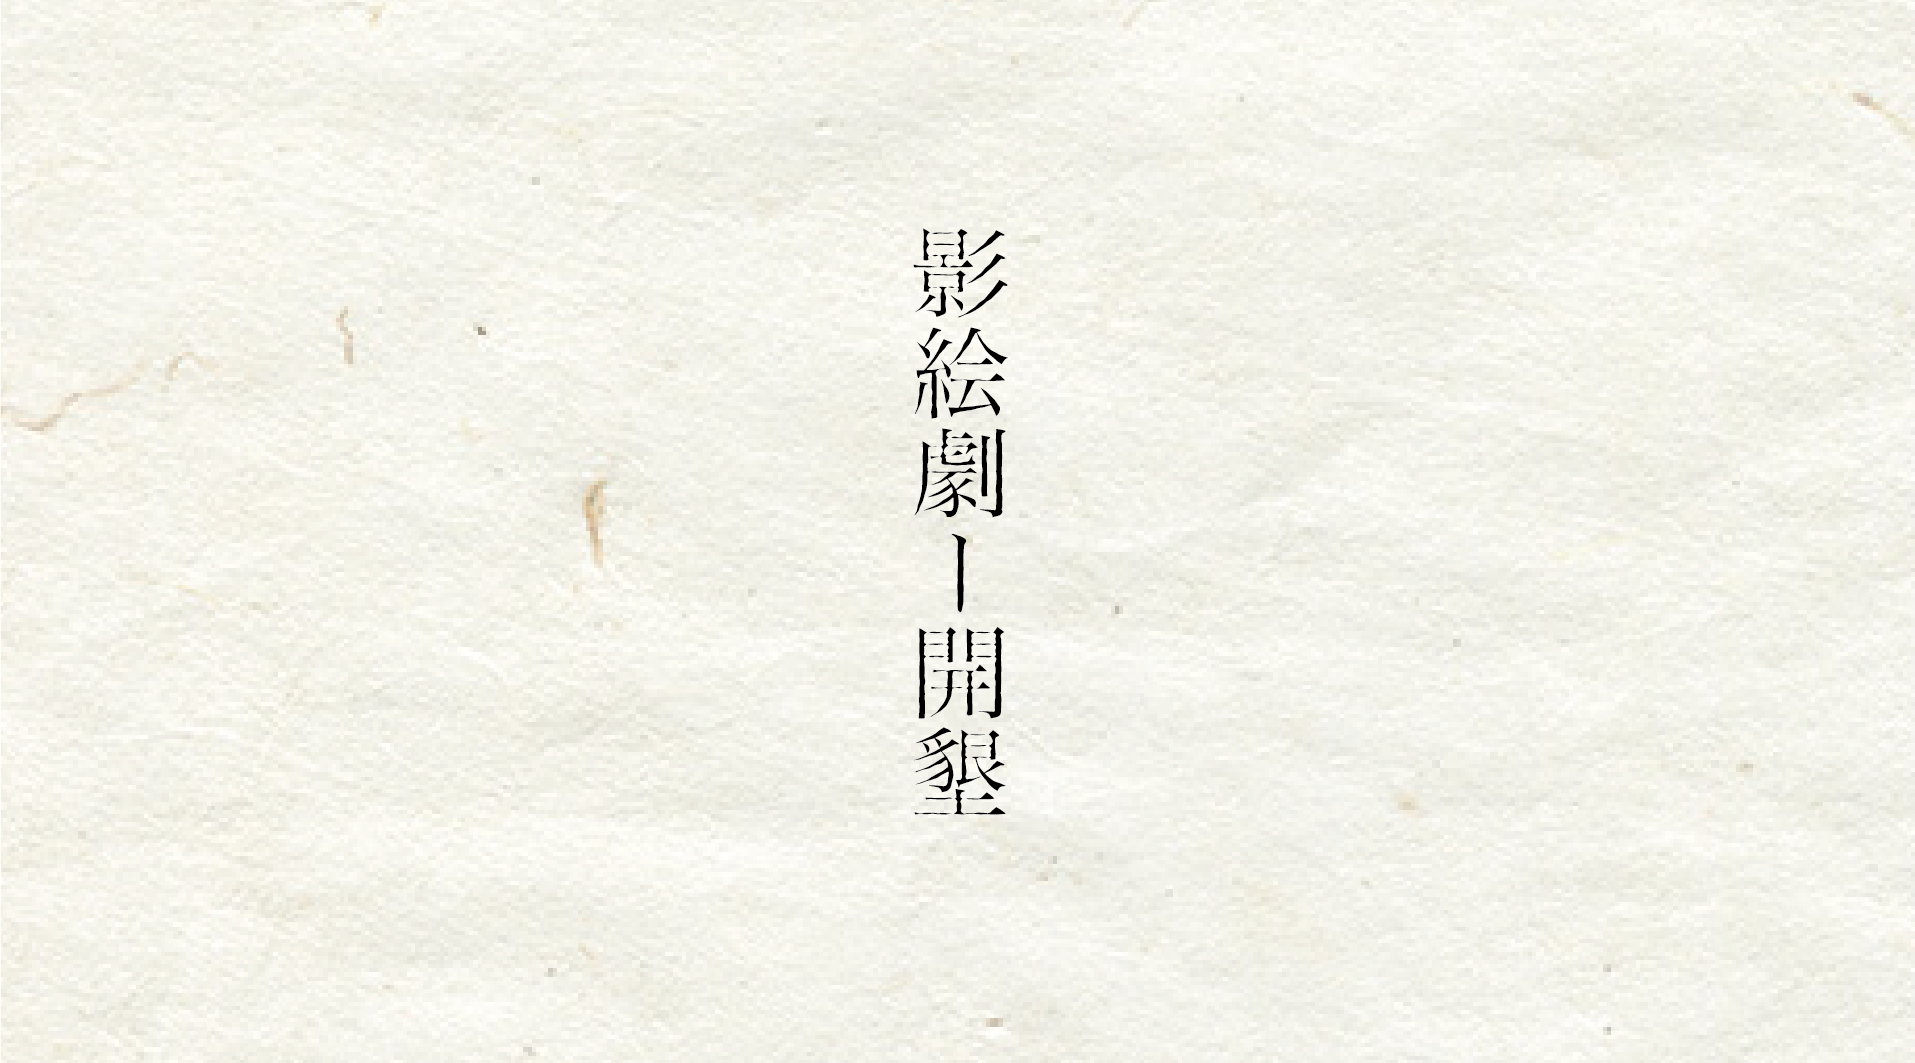 影絵劇ー開墾